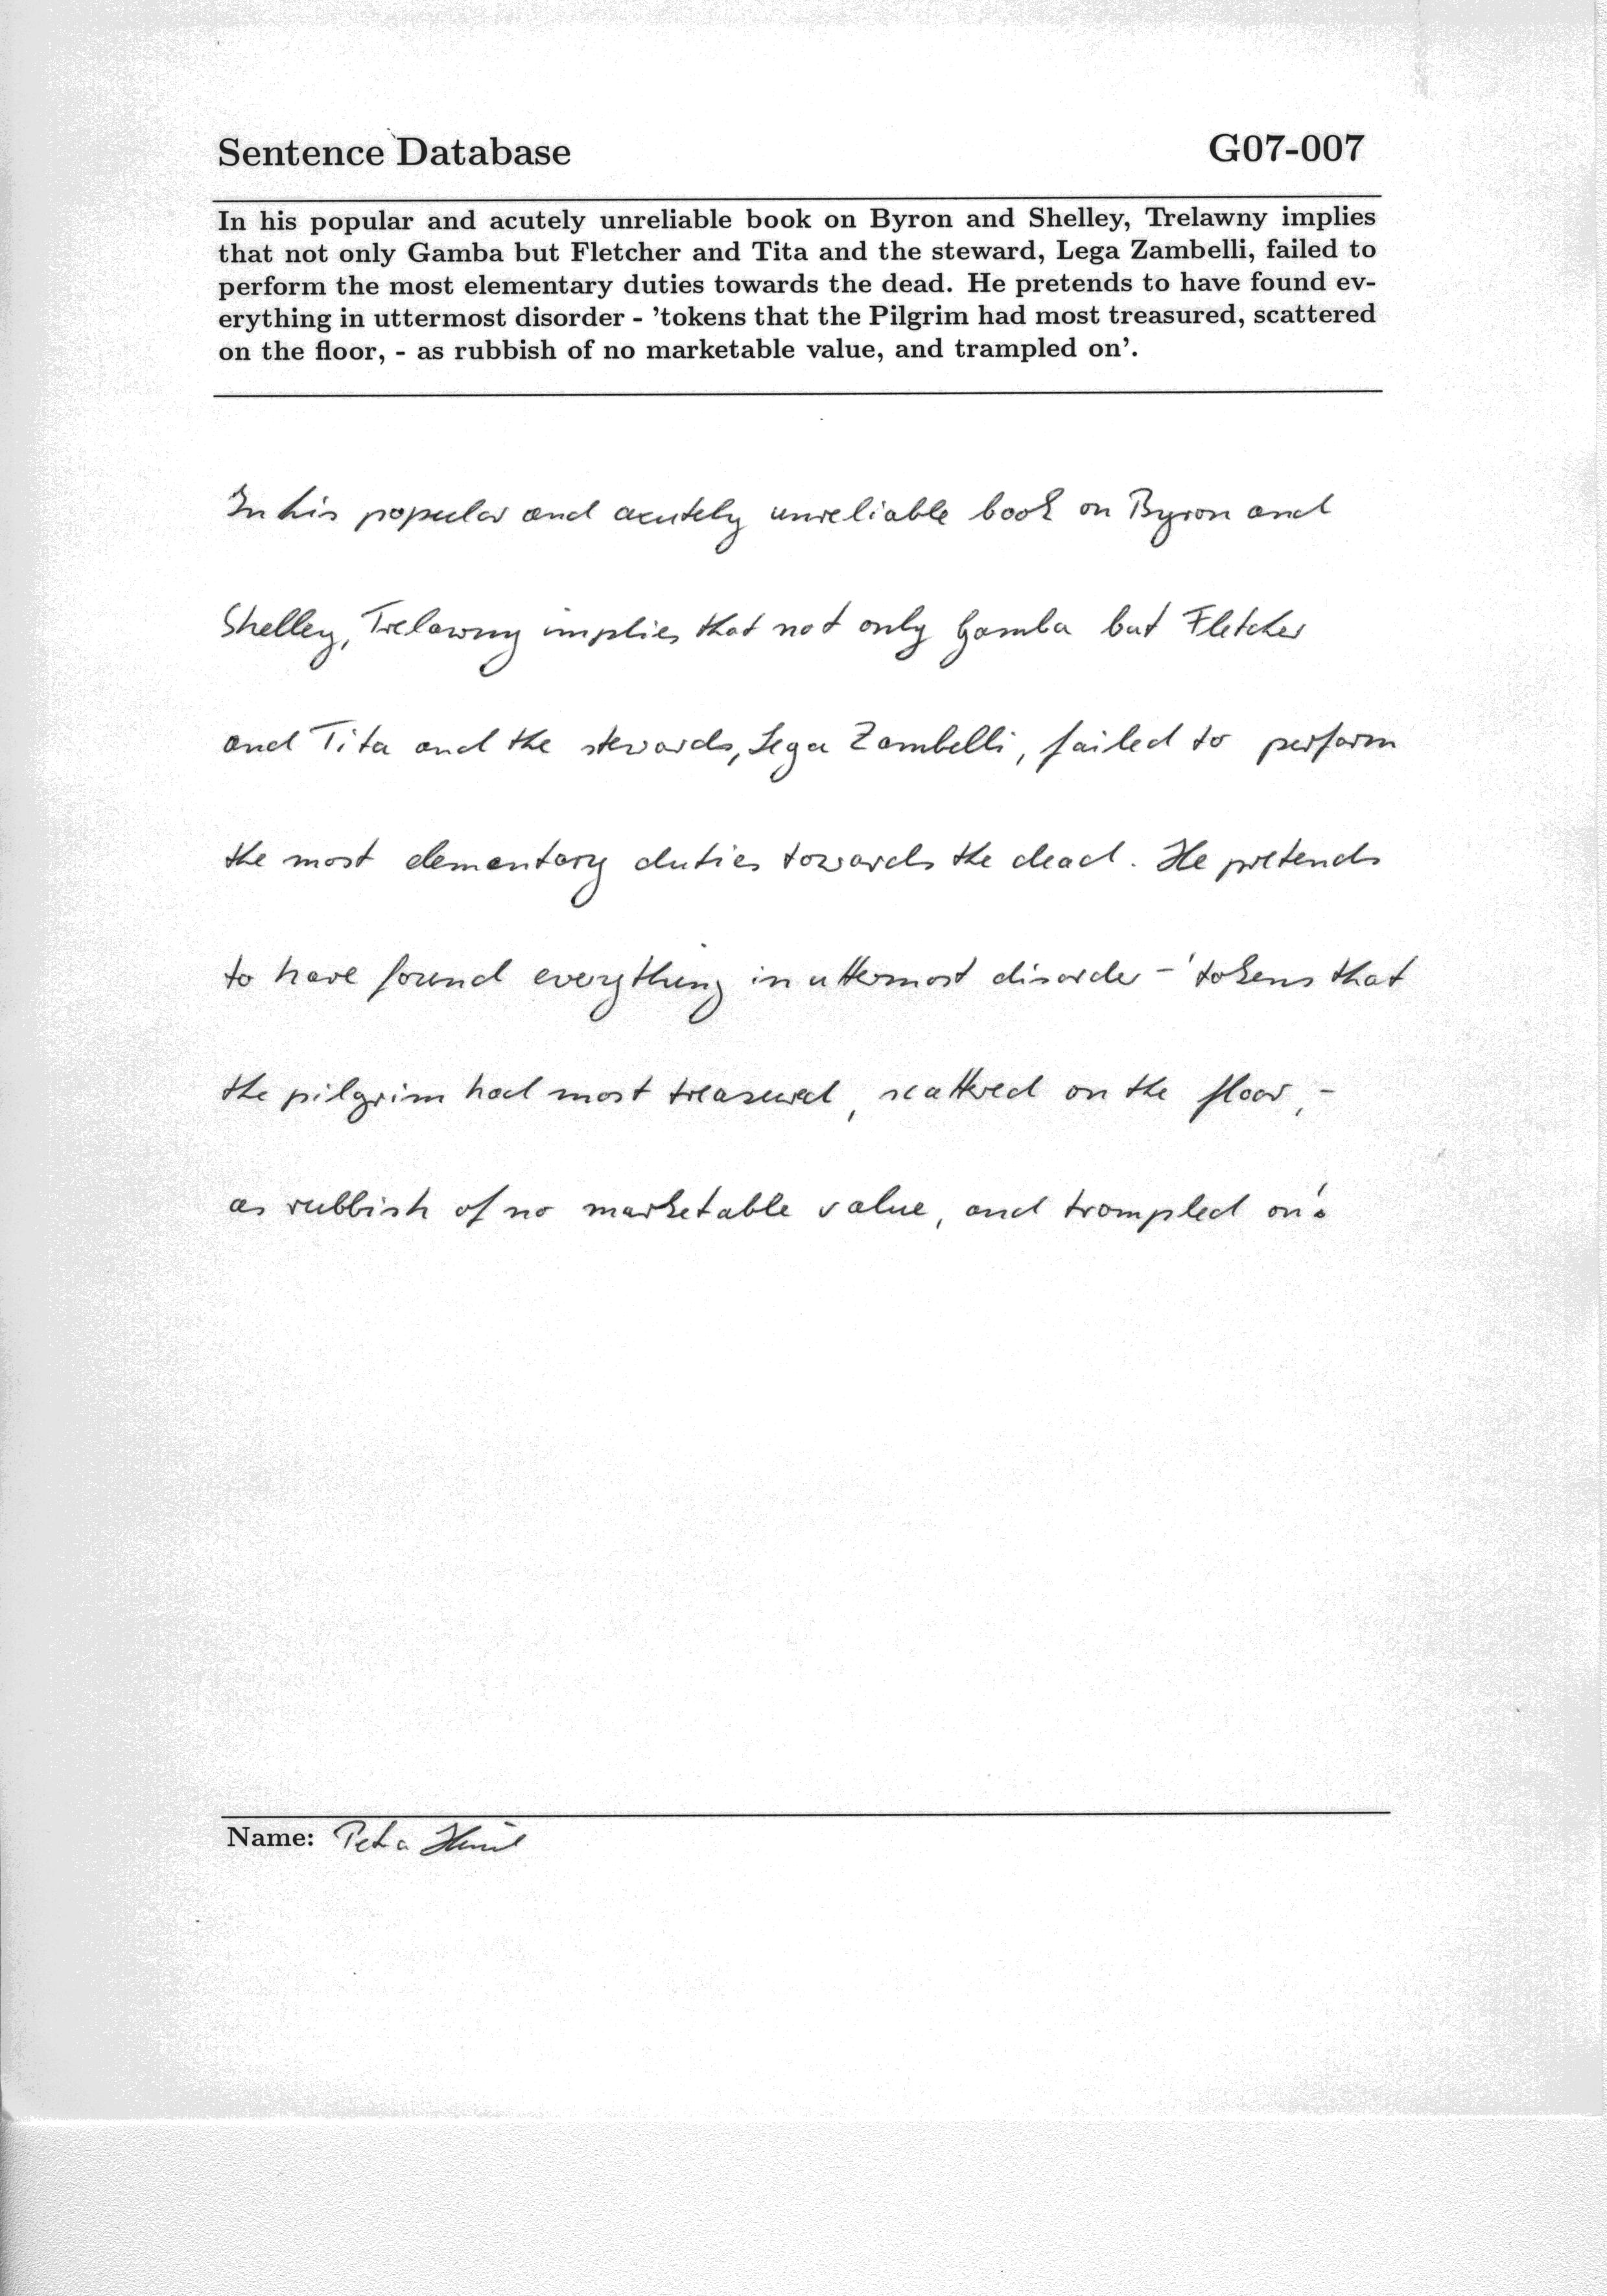 Sentence Database G07-007
In his popular and acutely unreliable book on Byron and Shelley, Trelawny implies
that not only Gamba but Fletcher and Tita and the steward, Lega Zambelli, failed to
perform the most elementary duties towards the dead. He pretends to have found ev-
erything in uttermost disorder - 'tokens that the Pilgrim had most treasured, scattered
on the floor, - as rubbish of no marketable value, and trampled on'.
In his popular and acutely unreliable book on Byron and
Shelley, Trelawny implies that not only Gamba but Fletcher
and Tita and the stewards, Lega Zambelli, failed to perform
the most elementary duties towards the dead. He pretends
to have found everything in uttermost disorder - 'tokens that
the pilgrim had most treasured, scattered on the floor, -
as rubbish of no marketable value, and trampled on'.
Name: Petra